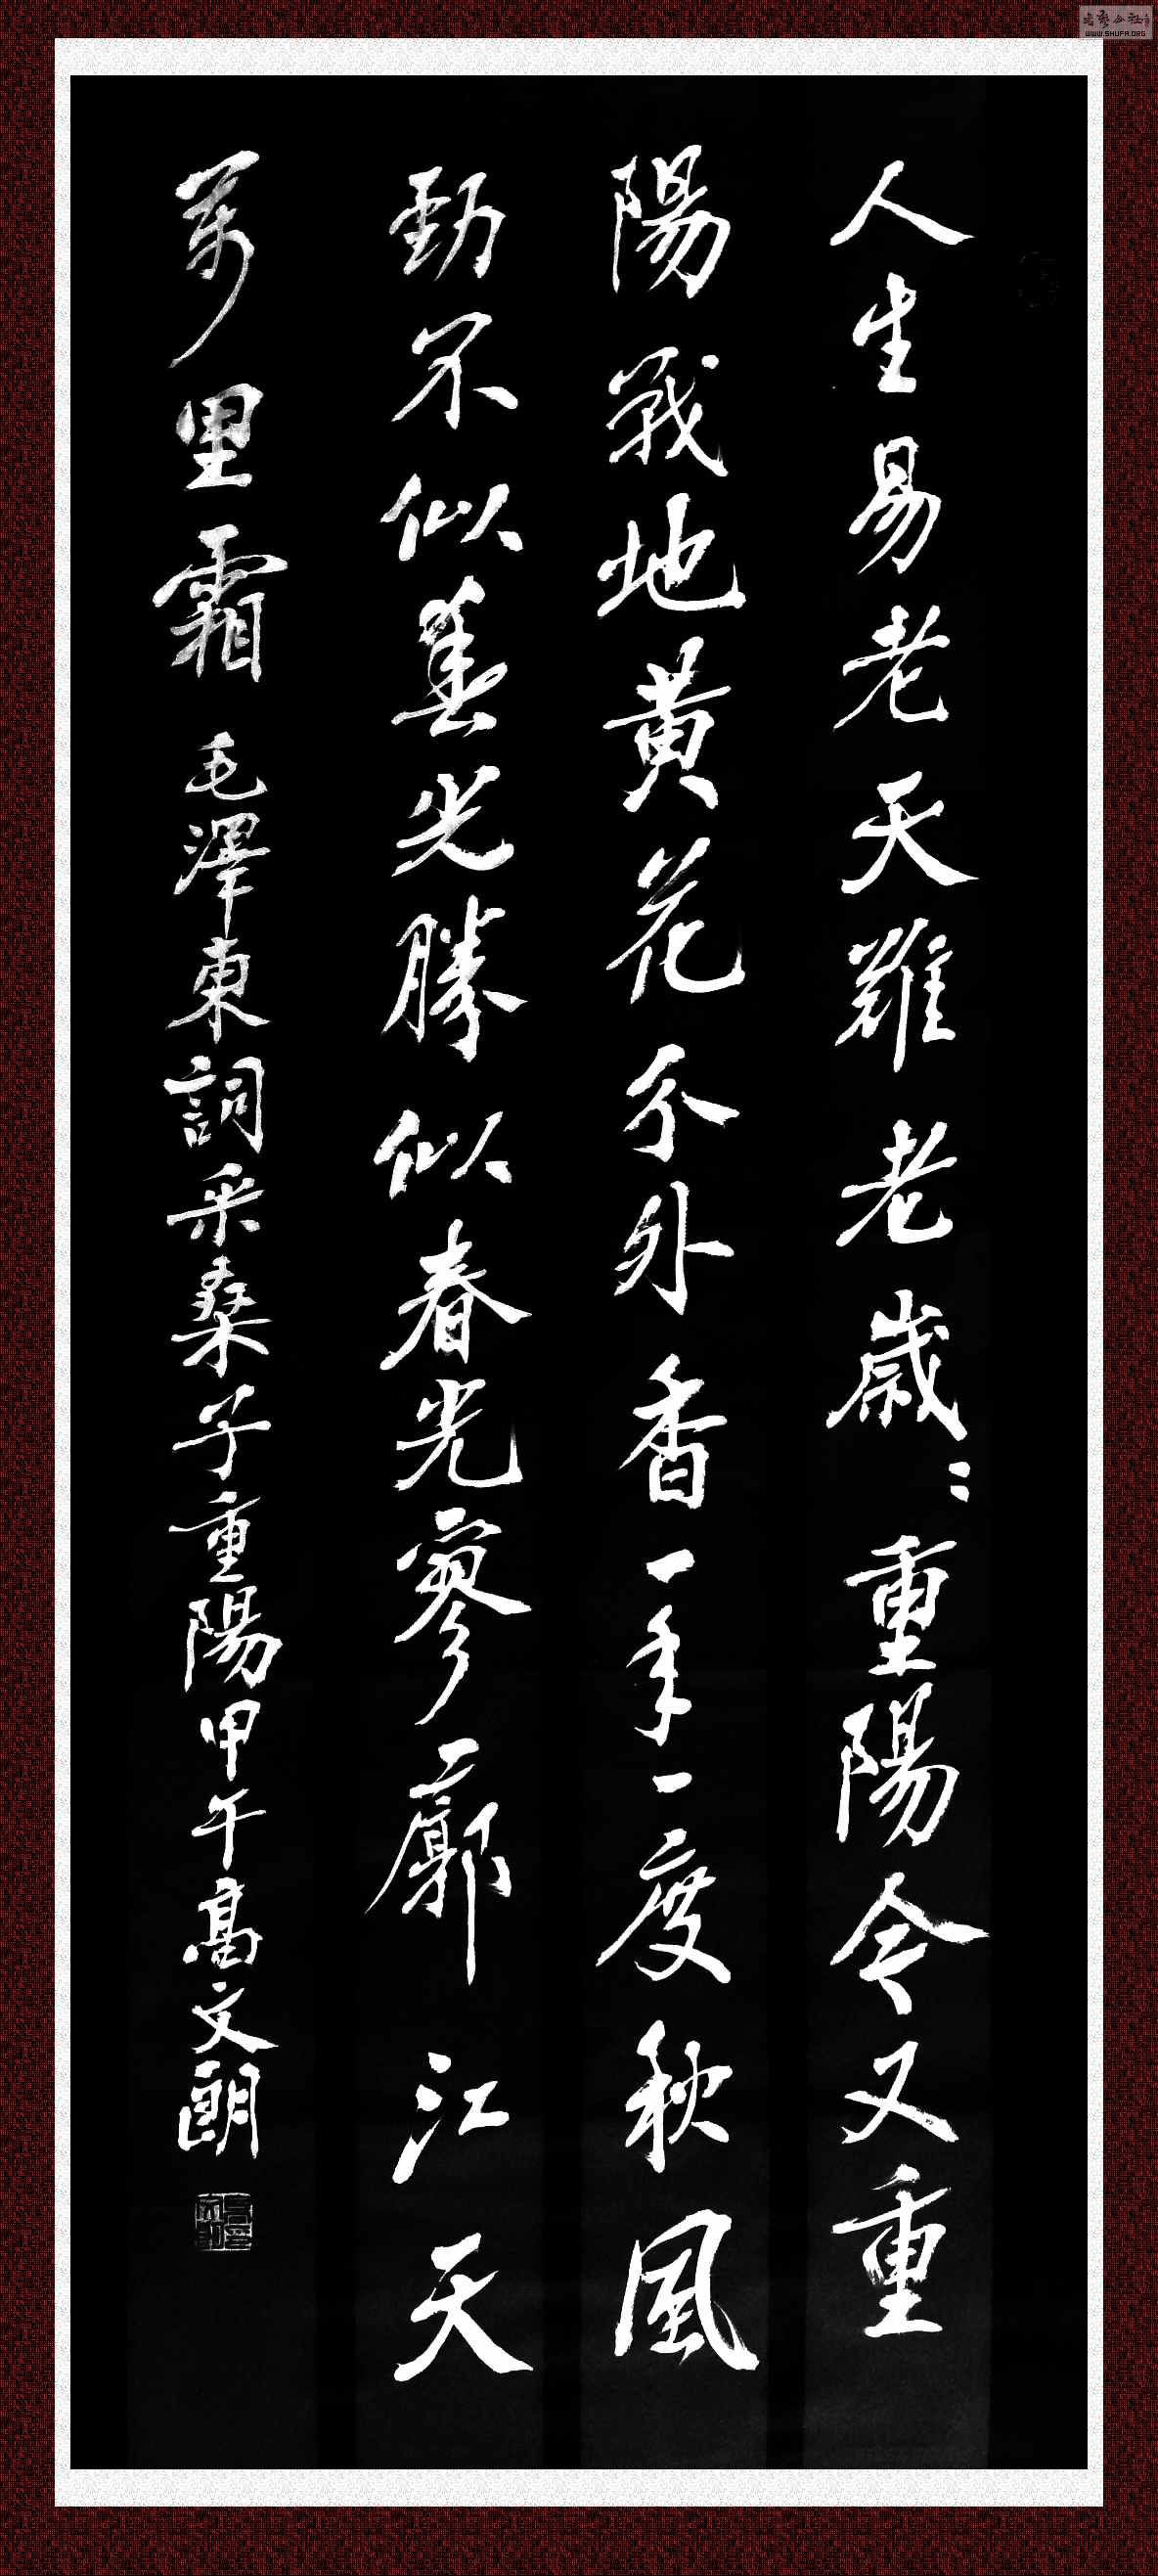 人生易老天難老歲:重陽今又重
陽戰地黄花分外香一年一度秋風
勁不似春光勝似春光寥廓江天
萬里霜
毛澤東詞采桑子重陽甲午高文朗
WWW.SHUFA.ORG